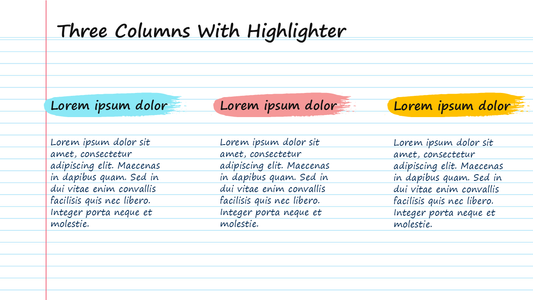 Three Columns With Highlighter
Lorem ipsum dolor
Lorem ipsum dolor sit
amet, consectetur
adipiscing elit. Maecenas
in dapibus quam. Sed in
dui vitae enim convallis
facilisis quis nec libero.
Integer porta neque et
molestie.
Lorem ipsum dolor
Lorem ipsum dolor sit
amet, consectetur
adipiscing elit. Maecenas
in dapibus quam. Sed in
dui vitae enim convallis
facilisis quis nec libero.
Integer porta neque et
molestie.
Lorem ipsum dolor
Lorem ipsum dolor sit
amet, consectetur
adipiscing elit. Maecenas
in dapibus quam. Sed in
dui vitae enim convallis
facilisis quis nec libero.
Integer porta neque et
molestie.